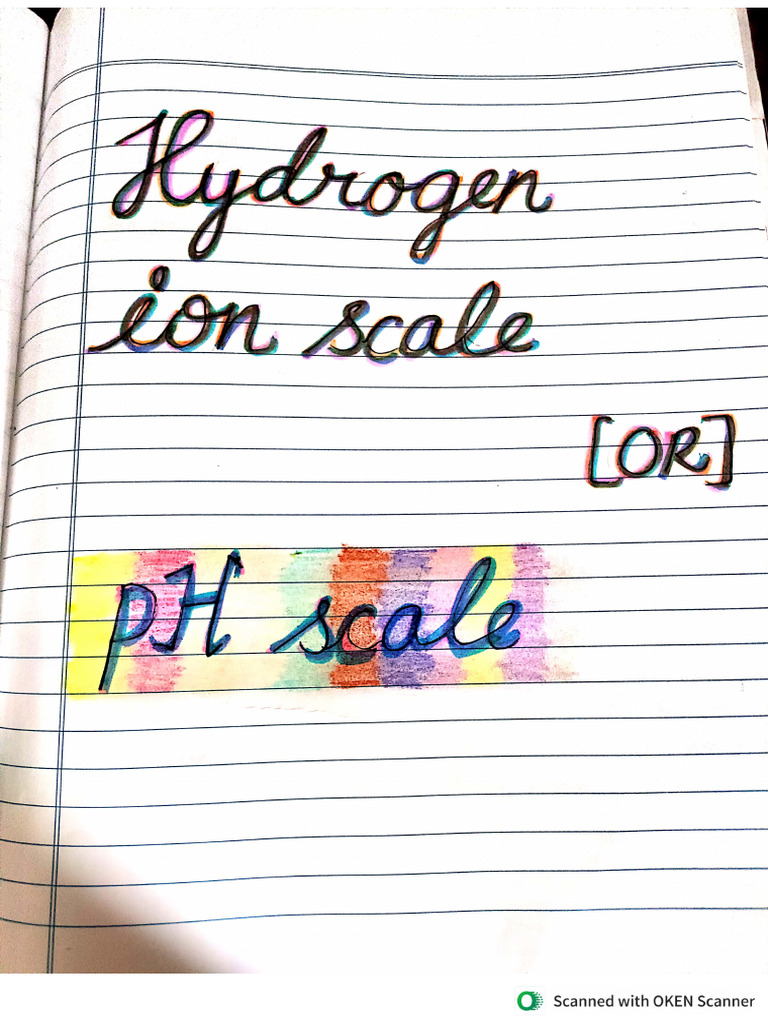 Hydrogen
ion scale
[OR]
pH scale
Scanned with OKEN Scanner